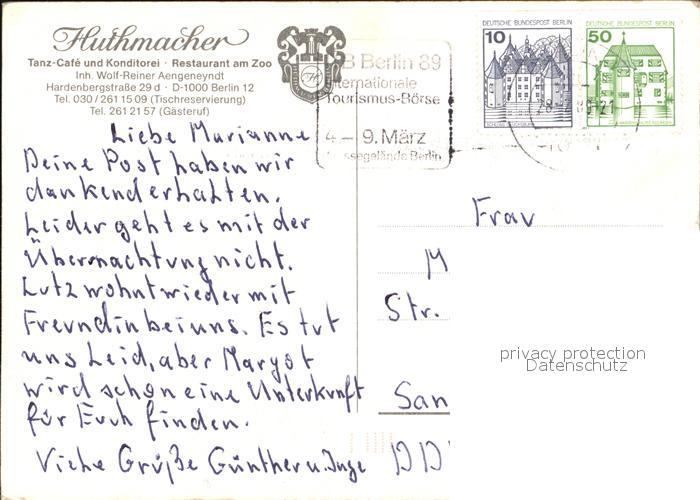 Huthmacher
Tanz-Café und Konditorei · Restaurant am Zoo
Inh. Wolf-Reiner Aengeneyndt
Hardenbergstraße 29 d · D-1000 Berlin 12
Tel. 030 / 261 15 09 (Tischreservierung)
Tel. 261 21 57 (Gästeruf)
B Berlin 89
Internationale
Tourismus-Börse
4 – 9. März
Messegelände Berlin
DEUTSCHE BUNDESPOST BERLIN
10
DEUTSCHE BUNDESPOST BERLIN
50
Liebe Marianne
Deine Post haben wir
dankend erhalten.
Leider geht es mit der
Übernachtung nicht.
Lutz wohnt wieder mit
Freundin bei uns. Es tut
uns Leid, aber Margot
wird schon eine Unterkunft
für Euch finden.
Viele Grüße Günther u. Inge
Frau
M
Str.
San
privacy protection
Datenschutz